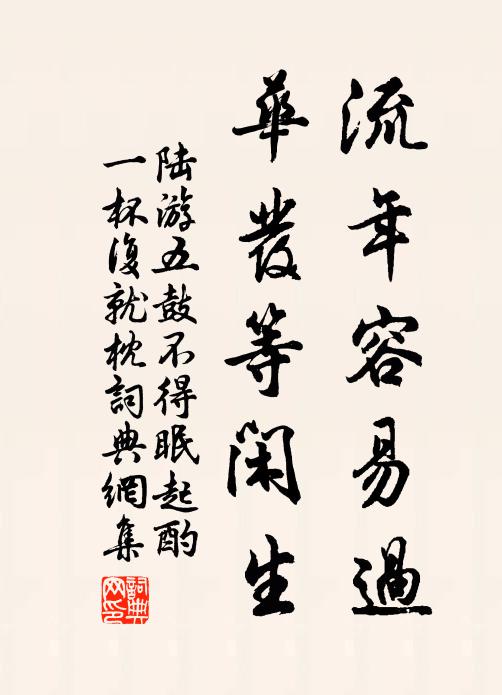 流年容易過
華发等閑生
陆游五鼓不得眠起酌
一杯復就枕詞典網集
詞典网印